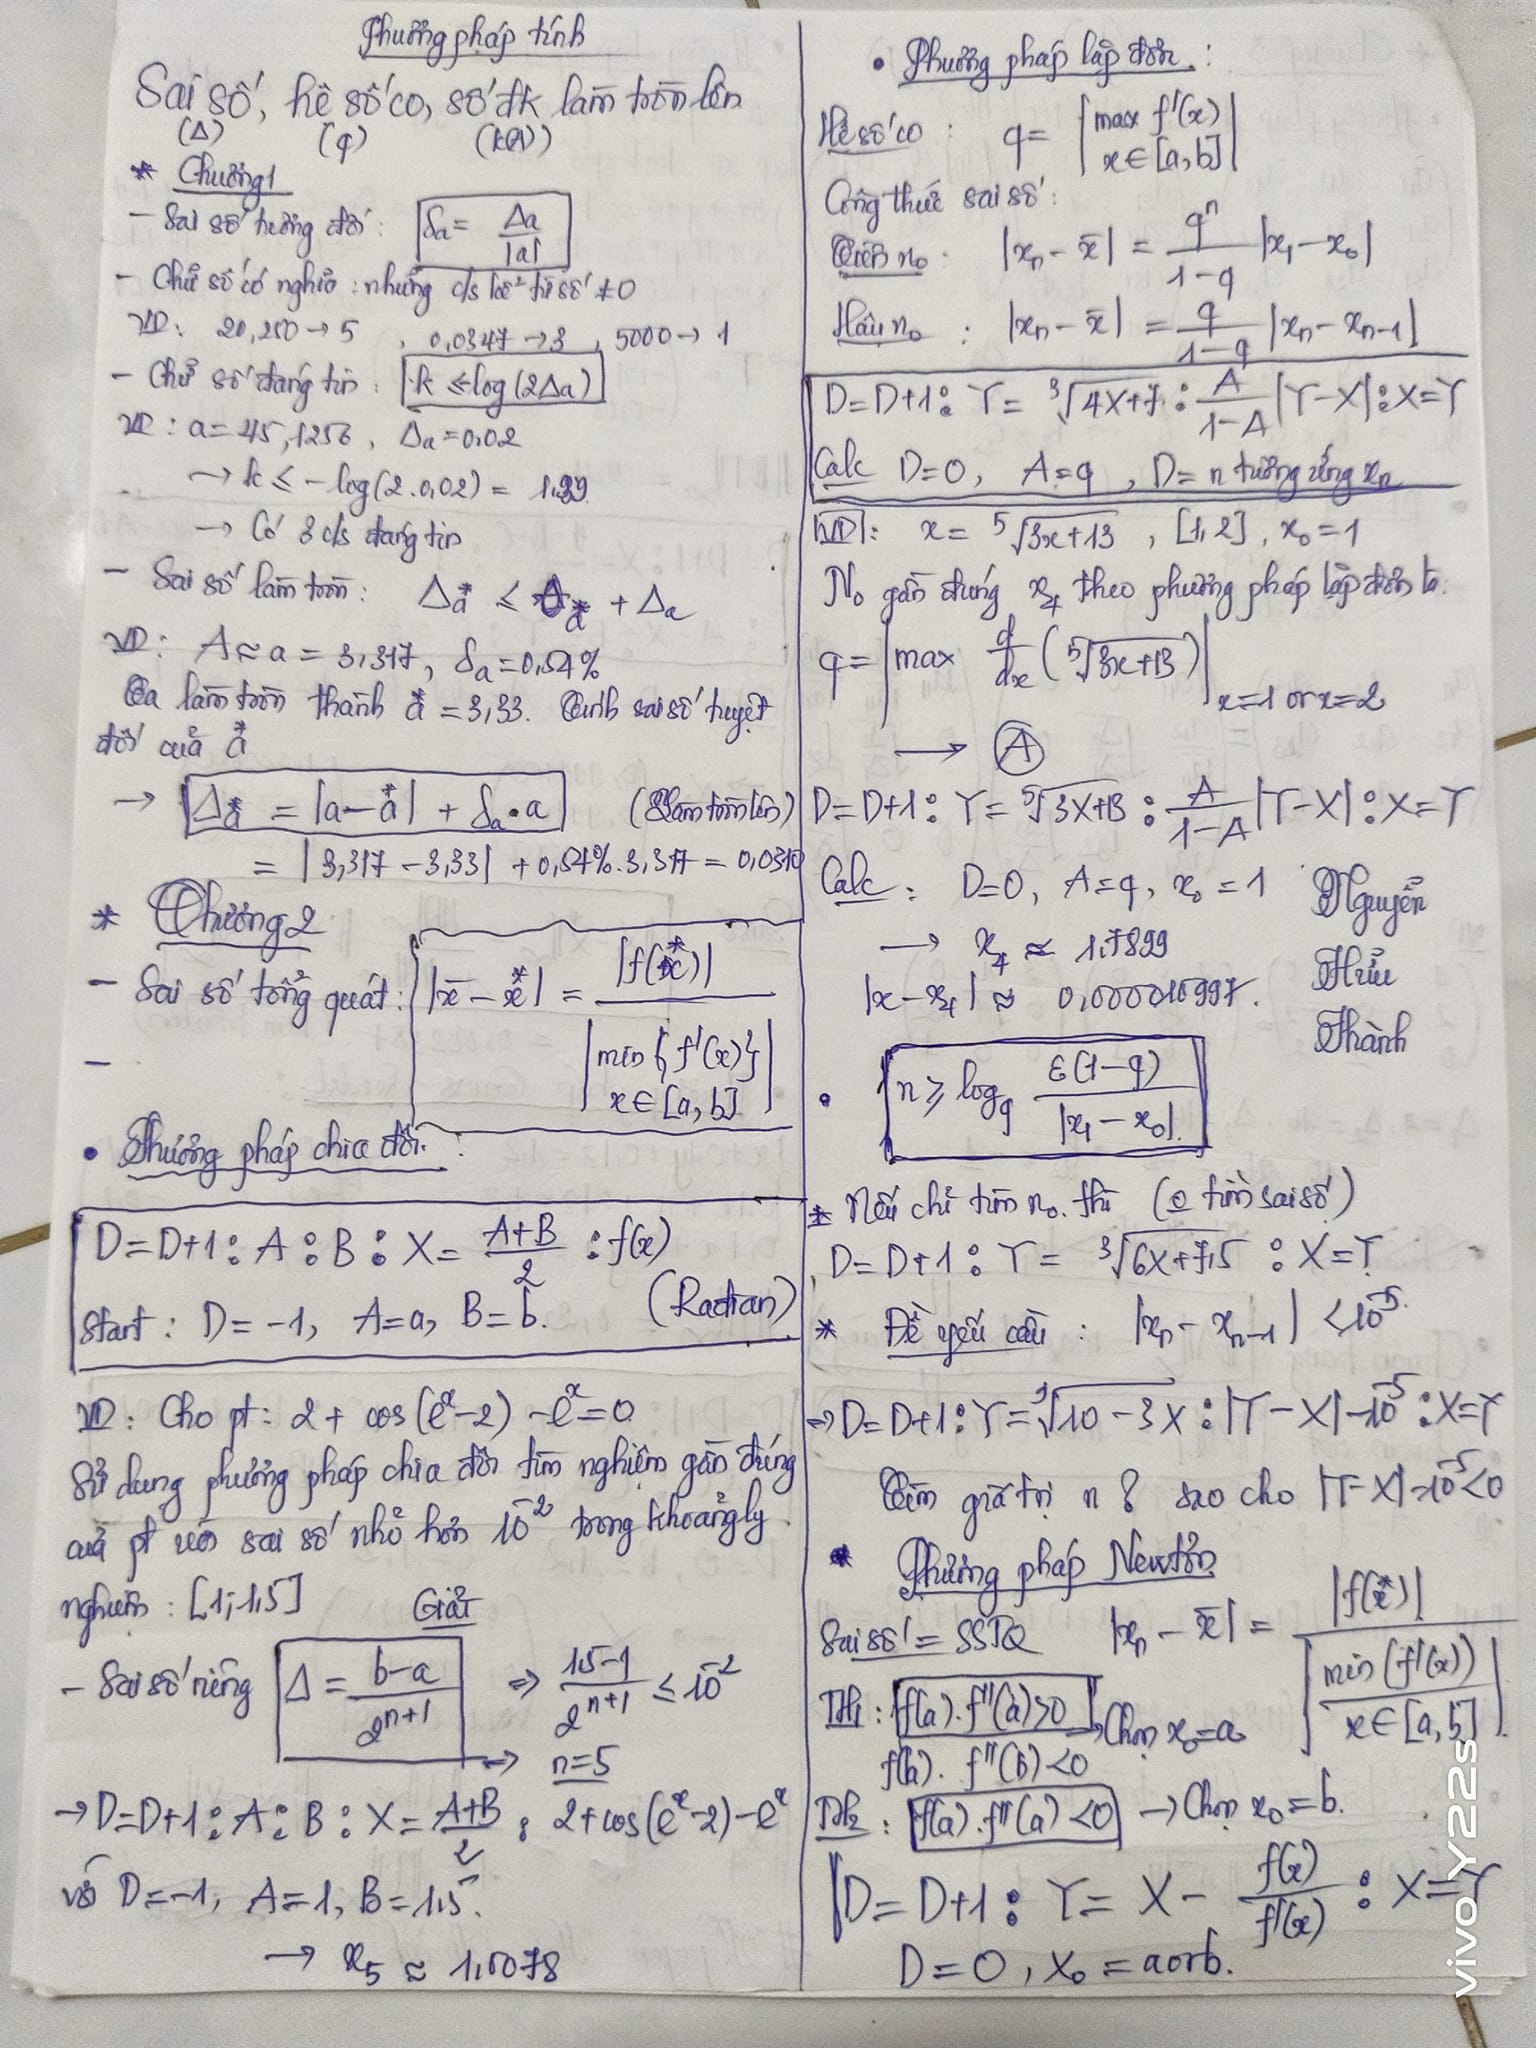 Phương pháp tính
Sai số, hệ số co, số đk làm tròn lên
(Δ) (q) (k(A))
* Chương 1
- Sai số tương đối: δa = Δa / |a|
- Chữ số có nghĩa: những c/s từ số ≠ 0
VD: 20,250 → 5 , 0,0347 → 3 , 5000 → 1
- Chữ số đáng tin: k ≤ -log(2Δa)
VD: a = 45,1256, Δa = 0,02
→ k ≤ -log(2.0,02) = 1,39
→ Có 3 c/s đáng tin
- Sai số làm tròn: Δa* ≤ + Δa
VD: A ≈ a = 3,317, δa = 0,54%
Ta làm tròn thành a* = 3,33. Tính sai số tuyệt
đối của a*
→ Δa* = |a - a*| + δa.a (Làm tròn lên)
= |3,317 - 3,33| + 0,54%.3,317 = 0,0310
* Chương 2
- Sai số tổng quát: |x̄ - x*| = |f(x*)| / |min{f'(x)} x∈[a,b]|
-
• Phương pháp chia đôi:
D=D+1 : A : B : X = (A+B)/2 : f(x)
Start: D = -1, A=a, B=b. (Radian)
VD: Cho pt: 2 + cos(e^x - 2) - e^x = 0
Sử dụng phương pháp chia đôi tìm nghiệm gần đúng
của pt với sai số nhỏ hơn 10^-2 trong khoảng ly
nghiệm: [1; 1,5]
Giải
- Sai số riêng Δ = (b-a)/2^(n+1) ⇒ (1,5-1)/2^(n+1) ≤ 10^-2
⇒ n=5
→ D=D+1 : A : B : X = (A+B)/2 : 2+cos(e^x-2)-e^x
với D=-1, A=1, B=1,5.
→ x5 ≈ 1,0078
• Phương pháp lặp đơn:
Hệ số co: q = |max f'(x) x∈[a,b]|
Công thức sai số:
Tiên no: |xn - x̄| = q^n/(1-q) |x1 - x0|
Hậu no: |xn - x̄| = q/(1-q) |xn - xn-1|
D=D+1 : Y = ∛(4X+7) : A/(1-A) |Y-X| : X=Y
Calc D=0, A=q, D=n tương ứng xn
VD: x = ⁵√(3x+13), [1,2], x0=1
No gần đúng x4 theo phương pháp lặp đơn là:
q = |max d/dx (⁵√(3x+13))| x=1 or x=2
→ A
D=D+1 : Y = ⁵√(3X+13) : A/(1-A) |Y-X| : X=Y
Calc: D=0, A=q, x0 = 1
→ x4 ≈ 1,7899
|x - x4| ≈ 0,000016997.
Nguyễn
Hữu
Thành
• n ≥ log_q ε(1-q) / |x1 - x0|
* Nếu chỉ tìm no. thì (o tìm sai số)
D=D+1 : Y = ∛(6X+7,5) : X=Y
* Đề yêu cầu: |xn - xn-1| < 10^-5
⇒ D=D+1 : Y = ∛(10-3X) : |Y-X|-10^-5 : X=Y
Tìm giá trị n? sao cho |Y-X|-10^-5<0
* Phương pháp Newtơn
Sai số = SSTQ |xn - x̄| = |f(x*)| / |min(f'(x)) x∈[a,b]|
TH1: f(a).f''(a)>0 → Chọn x0=a
f(b).f''(b)<0
TH2: f(a).f''(a)<0 → Chọn x0=b.
D=D+1 : Y = X - f(x)/f'(x) : X=Y
D=0, X0 = a or b.
vivo Y22s